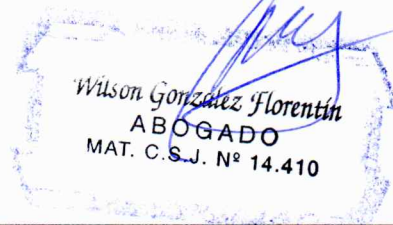 Wilson González Florentín
ABOGADO
MAT. C.S.J. Nº 14.410